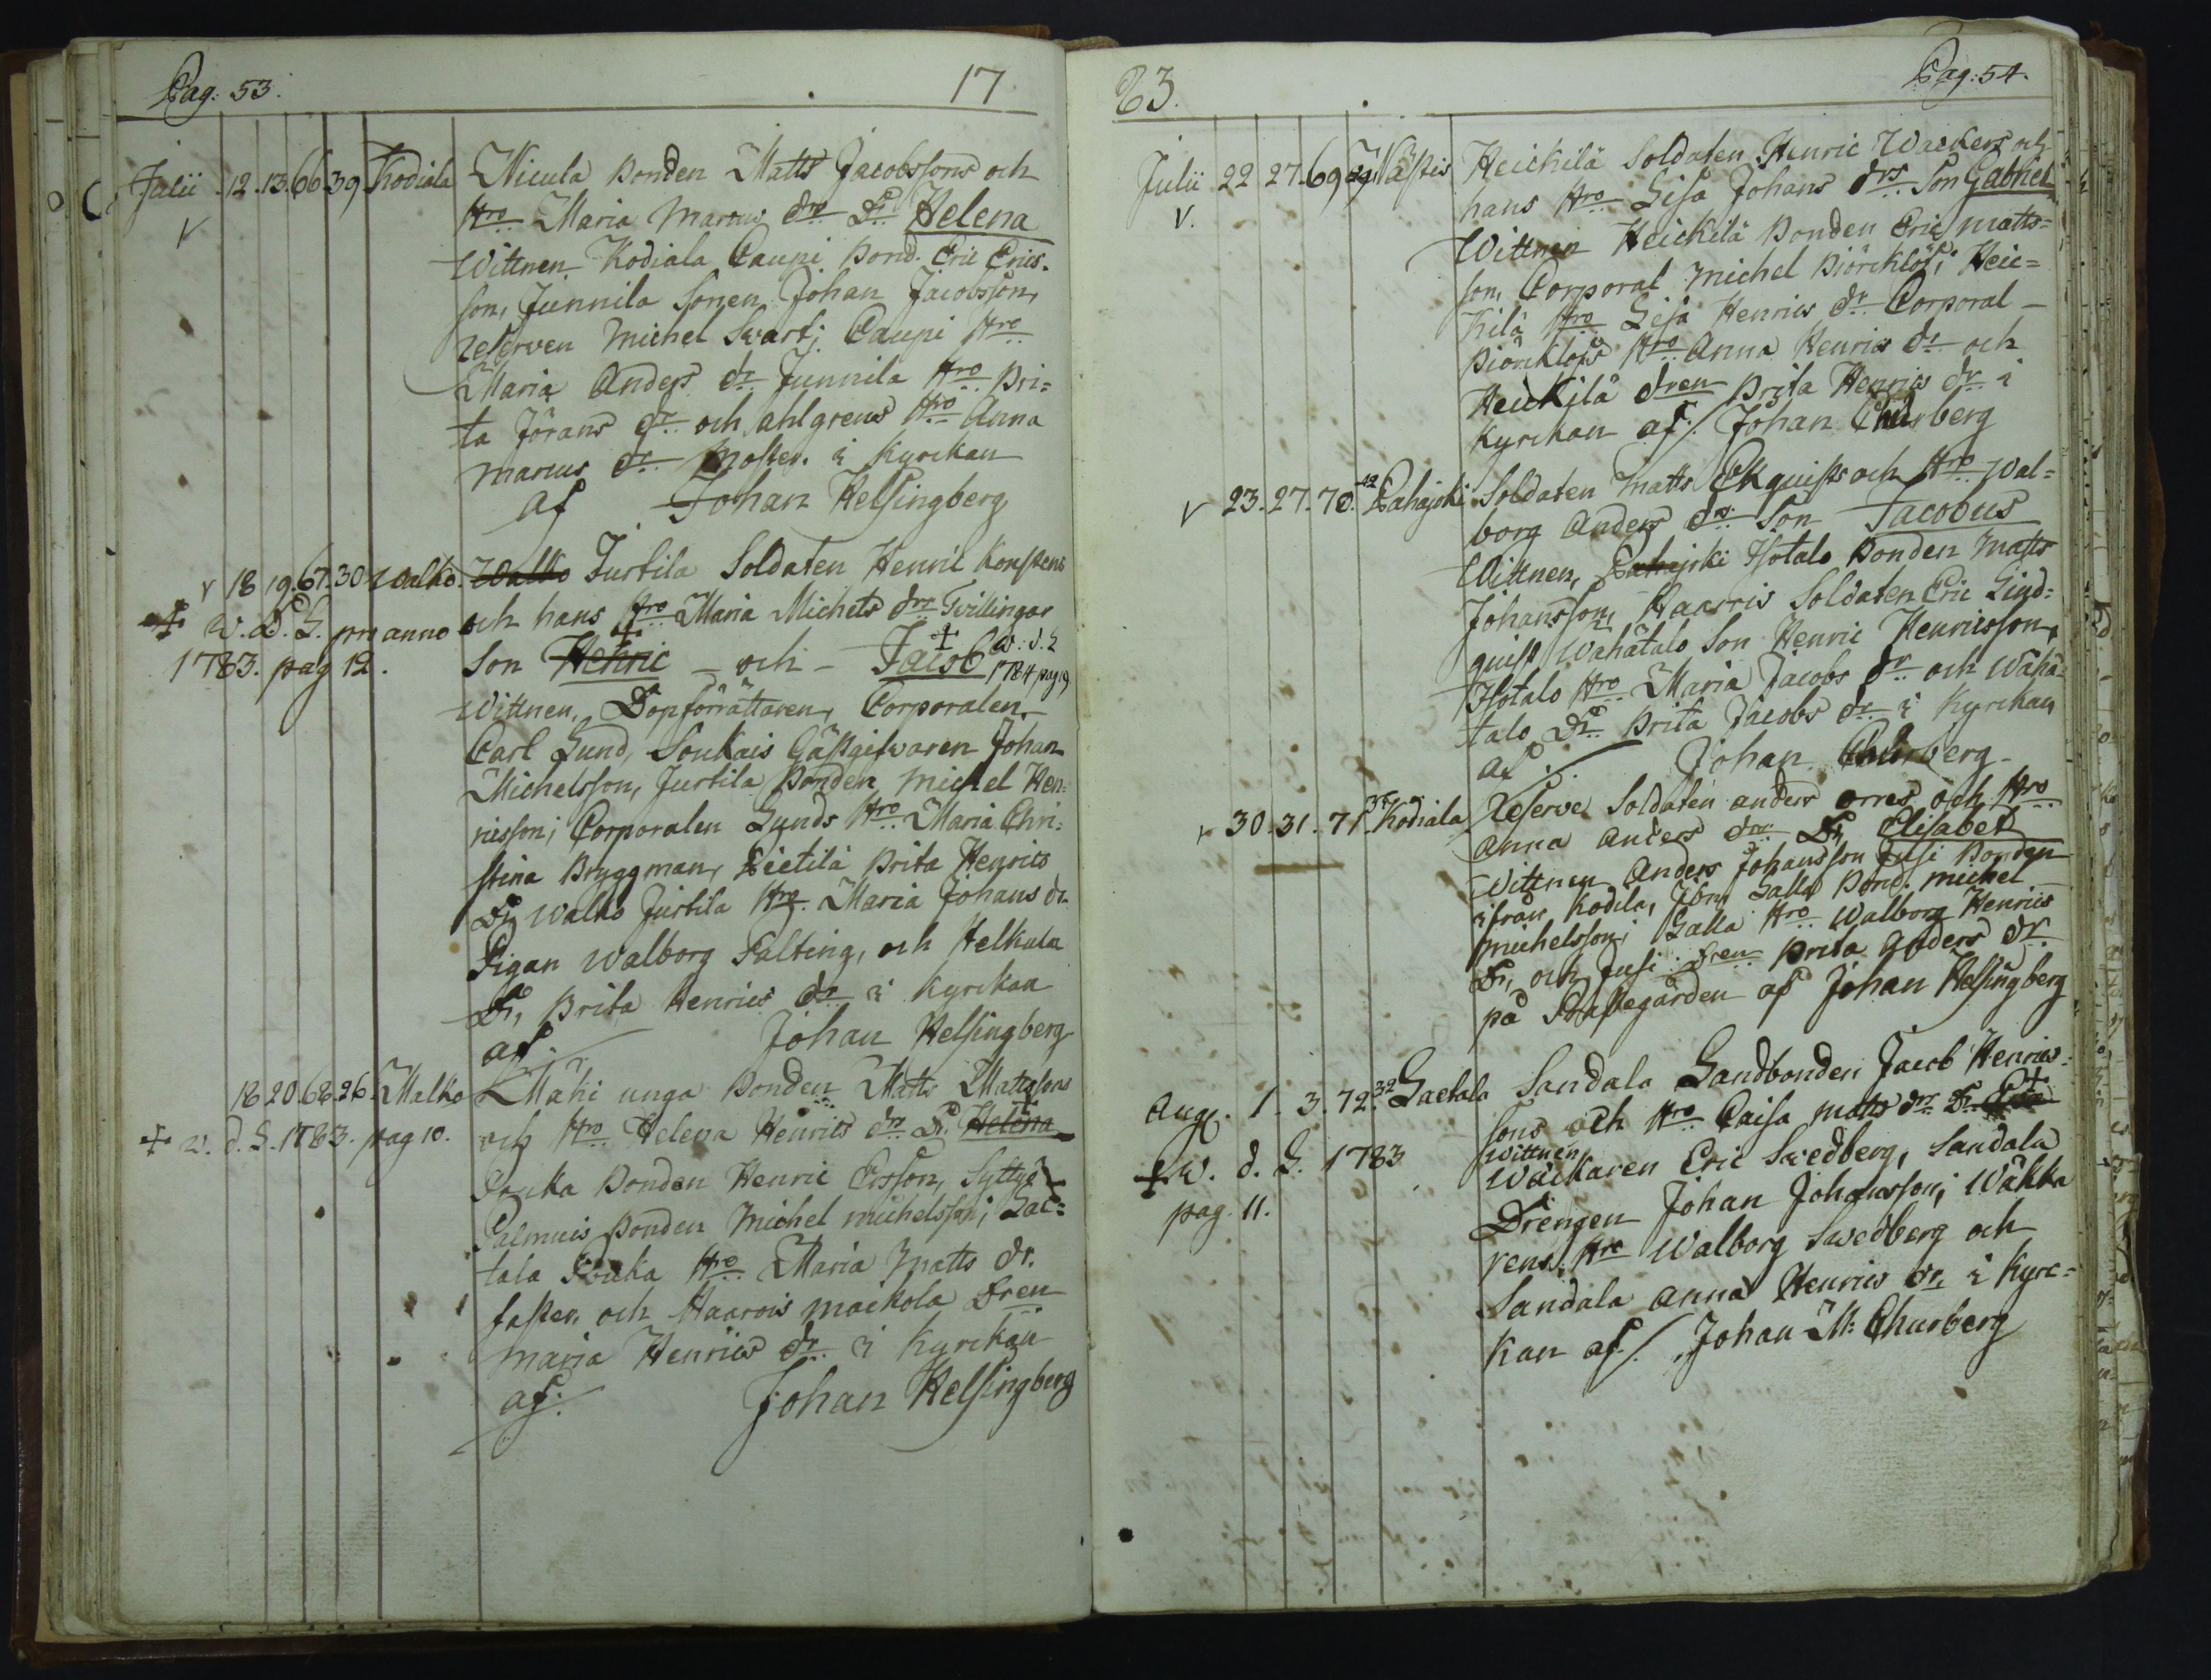 Pag: 53.
17
Julii 12. 13. 66 39 Kodiala Nicula Bonden Matts Jacobssons och
Hro Maria Marcus dro Dr Helena
Wittnen. Kodiala Caupi Bond. Eric Erics-
son, Junnila Sonen Johan Jacobsson,
reserven Michel Svart; Caupi Hro
Maria Anders dr Junnila Hro Bri=
ta Jörans dr och ahlgrens Hro Anna
marcus dr Moster. i Kyrckan
af Johan Helsingberg
v 18 19. 67. 30 Walko. Walko Jurtila Soldaten Henric Konstens
och hans Hro Maria Michels drs Tvillingar
+ w. d. L. pro anno
1783. pag 12.
Son Henric + och Jacob + w. d. L 1784 pag 19
Wittnen. Dopförrättaren, Corporalen
Carl Lund, Soukais Gästgifvaren Johan
Michelsson, Jurtila Bonden Michel Hen=
ricsson; Corporalen Lunds Hro Maria Chri=
stina Bryggman, Pietilä Brita Henrics
Dr, Walko Jurtila Hro Maria Johans dr
Pigan Walborg Palting, och Helkala
Dr, Brita Henrics dr i Kyrckan
af. Johan Helsingberg
18 20. 68. 26. Malko Mäki unga Bonden Matts Mattssons
+ w. d. L. 1783. pag 10. och Hro Helena Henrics dr Dr. Helena +
Pouka Bonden Henric Ersson, Syttyä
Palmuis Bonden Michel michelsson; Lae=
tala Pouka Hro Maria Matts dr.
faster. och Haarois mackola Dren
maria Henrics dr i Kyrckan
af. Johan Helsingberg
83.
Pag: 54.
Julii 22 27. 69 29. Nästis Heickilä Soldaten Henric Wackers och
v.
hans Hro Lisa Johans drs Son Gabriel
Wittnen Heickilä Bonden Eric matts=
son, Corporal Michel Biörcklöf; Heic=
kilä Hro Lisa Henrics dr Corporal
Biörcklöfs Hro Anna Henrics dr och
Heickilä dren Brita Henrics dr i
Kyrckan af. Johan Churberg
v 23. 27. 70. 42 Pahajoki Soldaten Matts Ekquists och Hro Wal=
borg Anders drs Son Jacobus
Wittnen, Pahajoki Isotalo Bonden Matts
Johansson, Haarois Soldaten Eric Lind=
quist, Wähätalo Son Henric Henricsson,
Isotalo Hro Maria Jacobs dr och Wähä
talo Dr Brita Jacobs dr i Kyrckan
af. Johan Churberg
v 30. 31. 71. Kodiala Reserve Soldaten anders orres och Hro
anna anders drs Dr Elisabet
Wittnen Anders Johansson Jusi Bonden
ifrån Kodila, Jörn Lalla Bond. michel
michelsson; Lalla Hro Walborg Henrics
Dr, och Jusi Dren Brita anders dr
på Prästegården af Johan Helsingberg
Aug. 1. 3. 72. 32 Laetala Sandala Landbonden Jacob Henrics=
sons och Hro Caisa matts drs Dr. Eva +
+ w. d. L. 1783
pag. 11.
Wittnen
Wäckaren Eric Swedberg, Sandala
Drengen Johan Johansson; Wäkka
rens Hro Walborg Swedberg och
Sandala Anna Henrics dr i Kyrc=
kan af. Johan M: Churberg